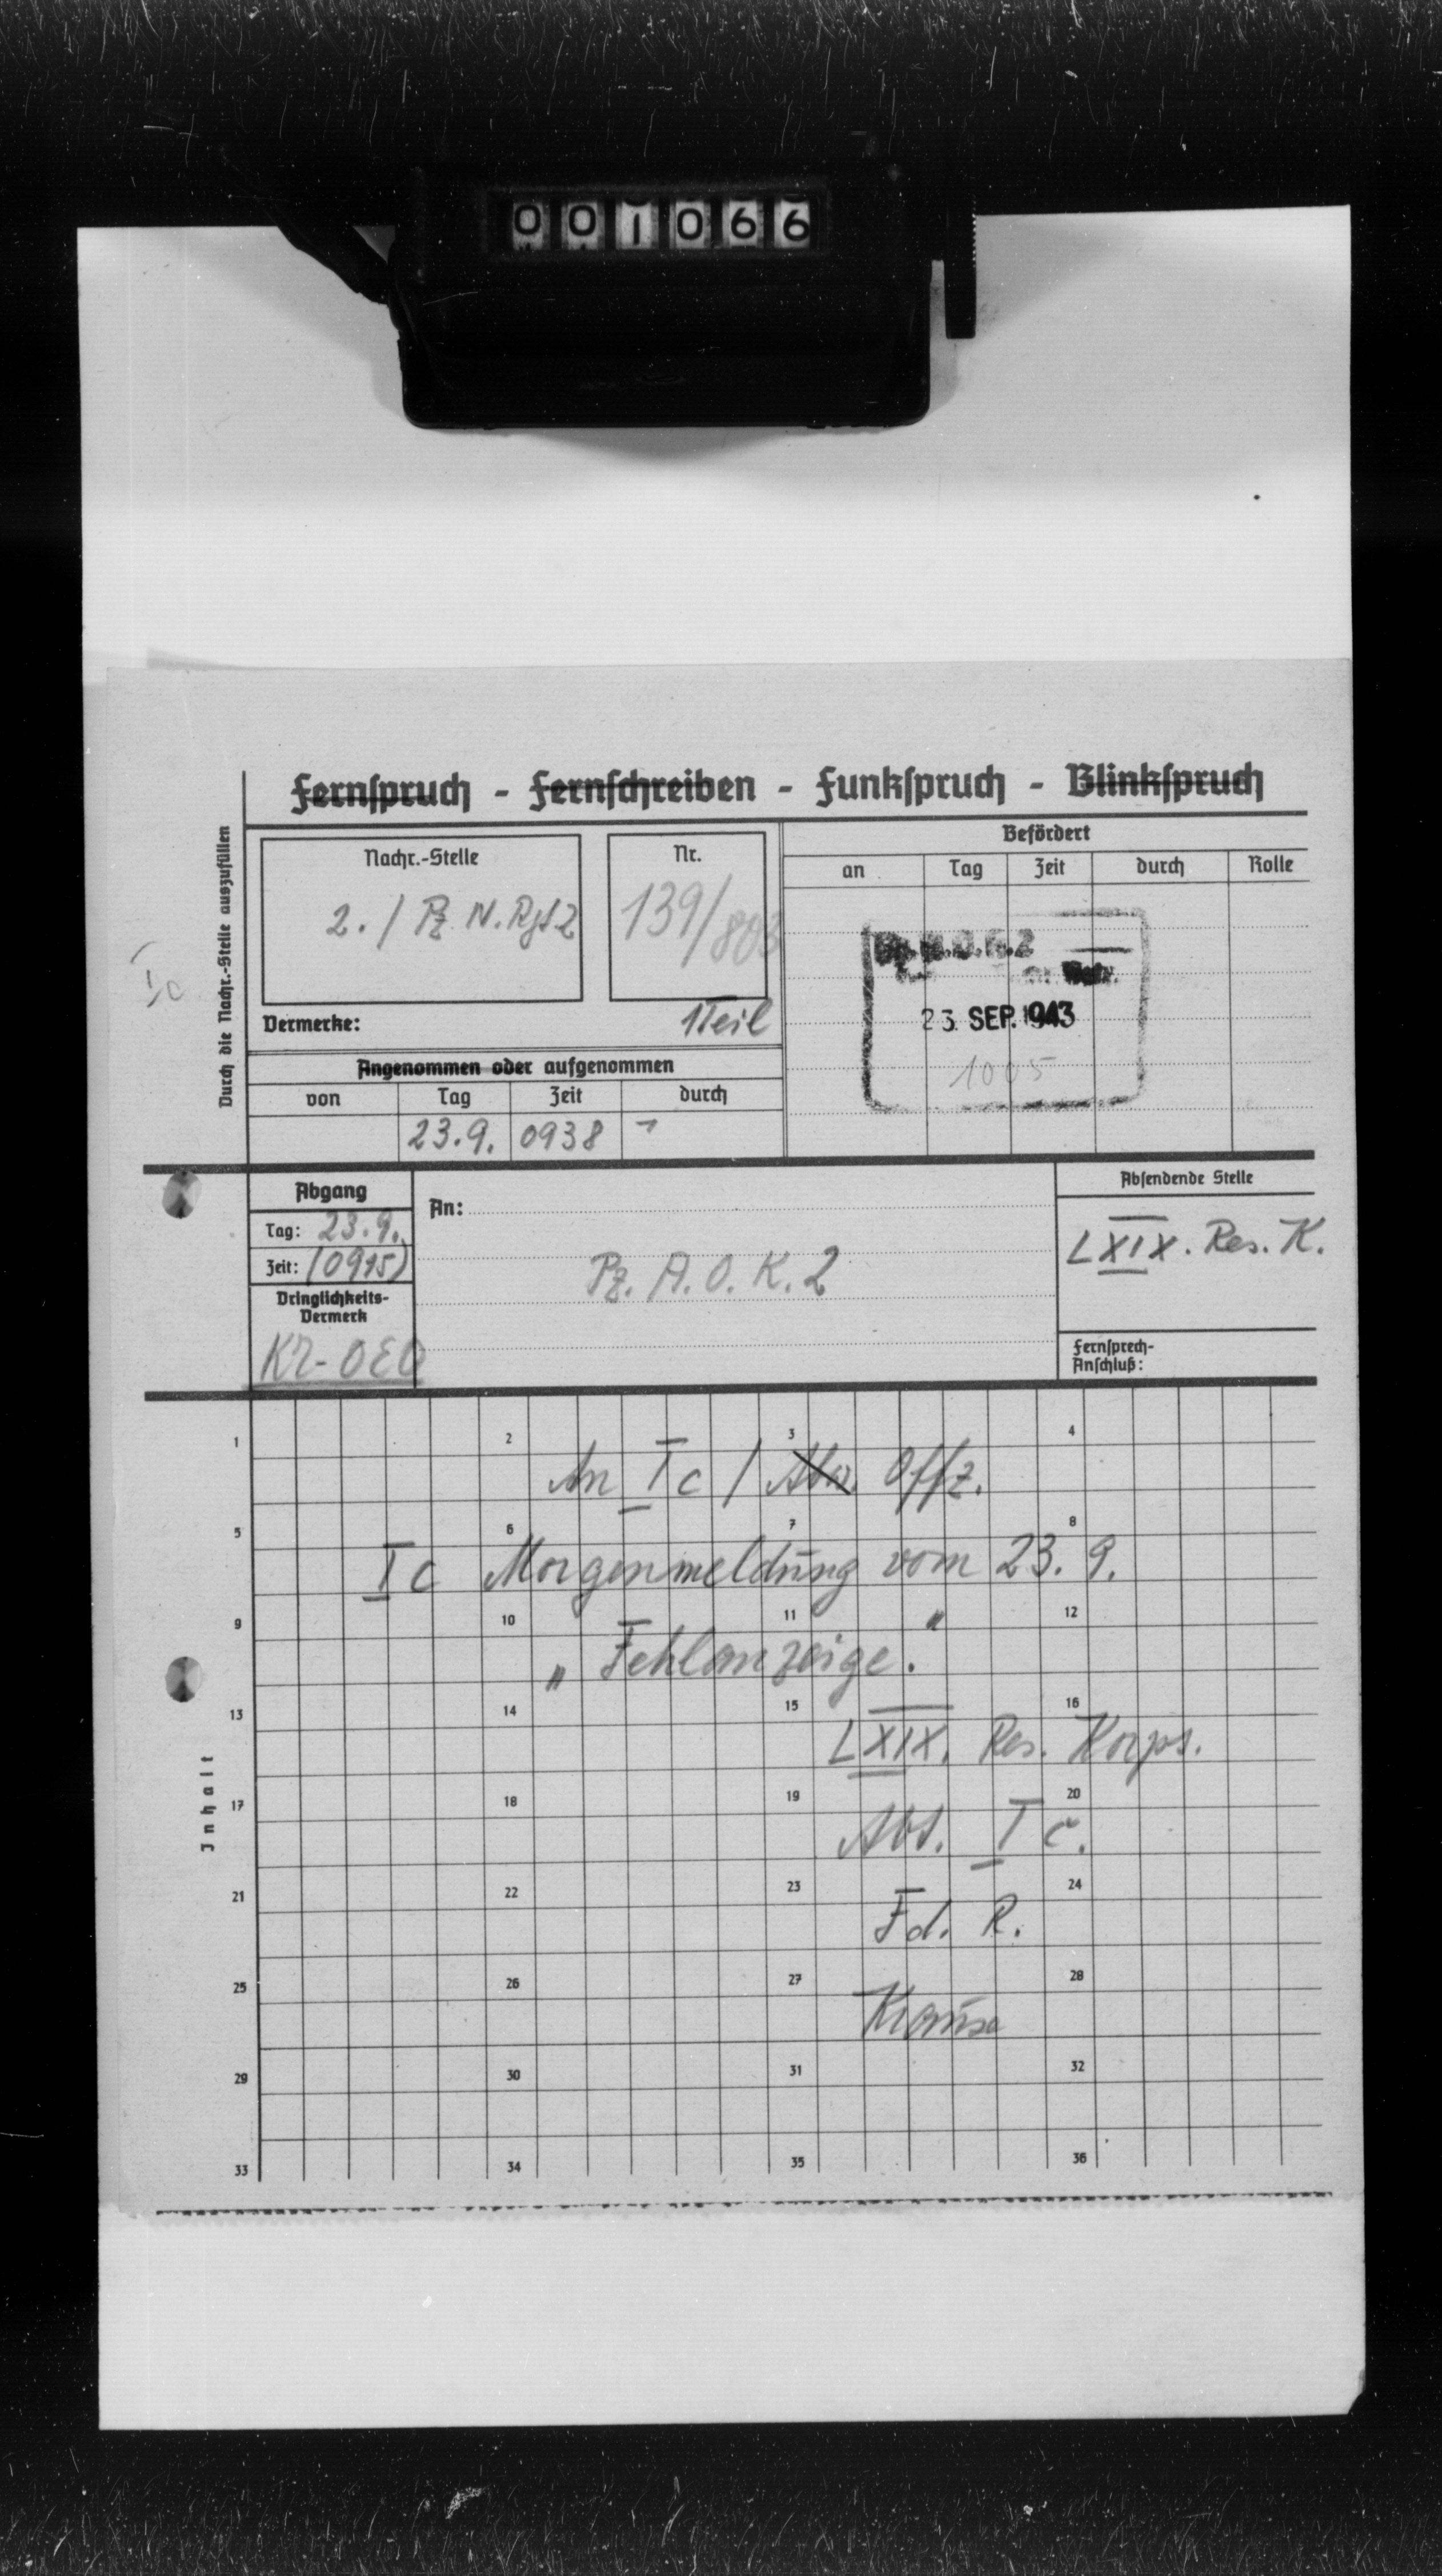 001066
Fernspruch - Fernschreiben - Funkspruch - Blinkspruch
Durch die Nachr.-Stelle auszufüllen
Ic
Nachr.-Stelle
2. / Pz. N. Rgt 2
Nr.
139/803
Vermerke:
1 Teil
Angenommen oder aufgenommen
von Tag Zeit durch
23.9. 0938
Befördert
an Tag Zeit durch Rolle
23. SEP. 1943
1005
Abgang
Tag: 23.9.
Zeit: (0915)
Dringlichkeits-
Vermerk
KR-
An:
Pz. A. O. K. 2
Absendende Stelle
LXIX. Res. K.
Fernsprech-
Anschluß:
Inhalt
1 2 3 4
An Ic / Abw. Offz.
5 6 7 8
Ic Morgenmeldung vom 23. 9.
9 10 11 12
„Fehlanzeige."
13 14 15 16
LXIX. Res. Korps.
17 18 19 20
Abt. Ic.
21 22 23 24
F. d. R.
25 26 27 28
29 30 31 32
33 34 35 36